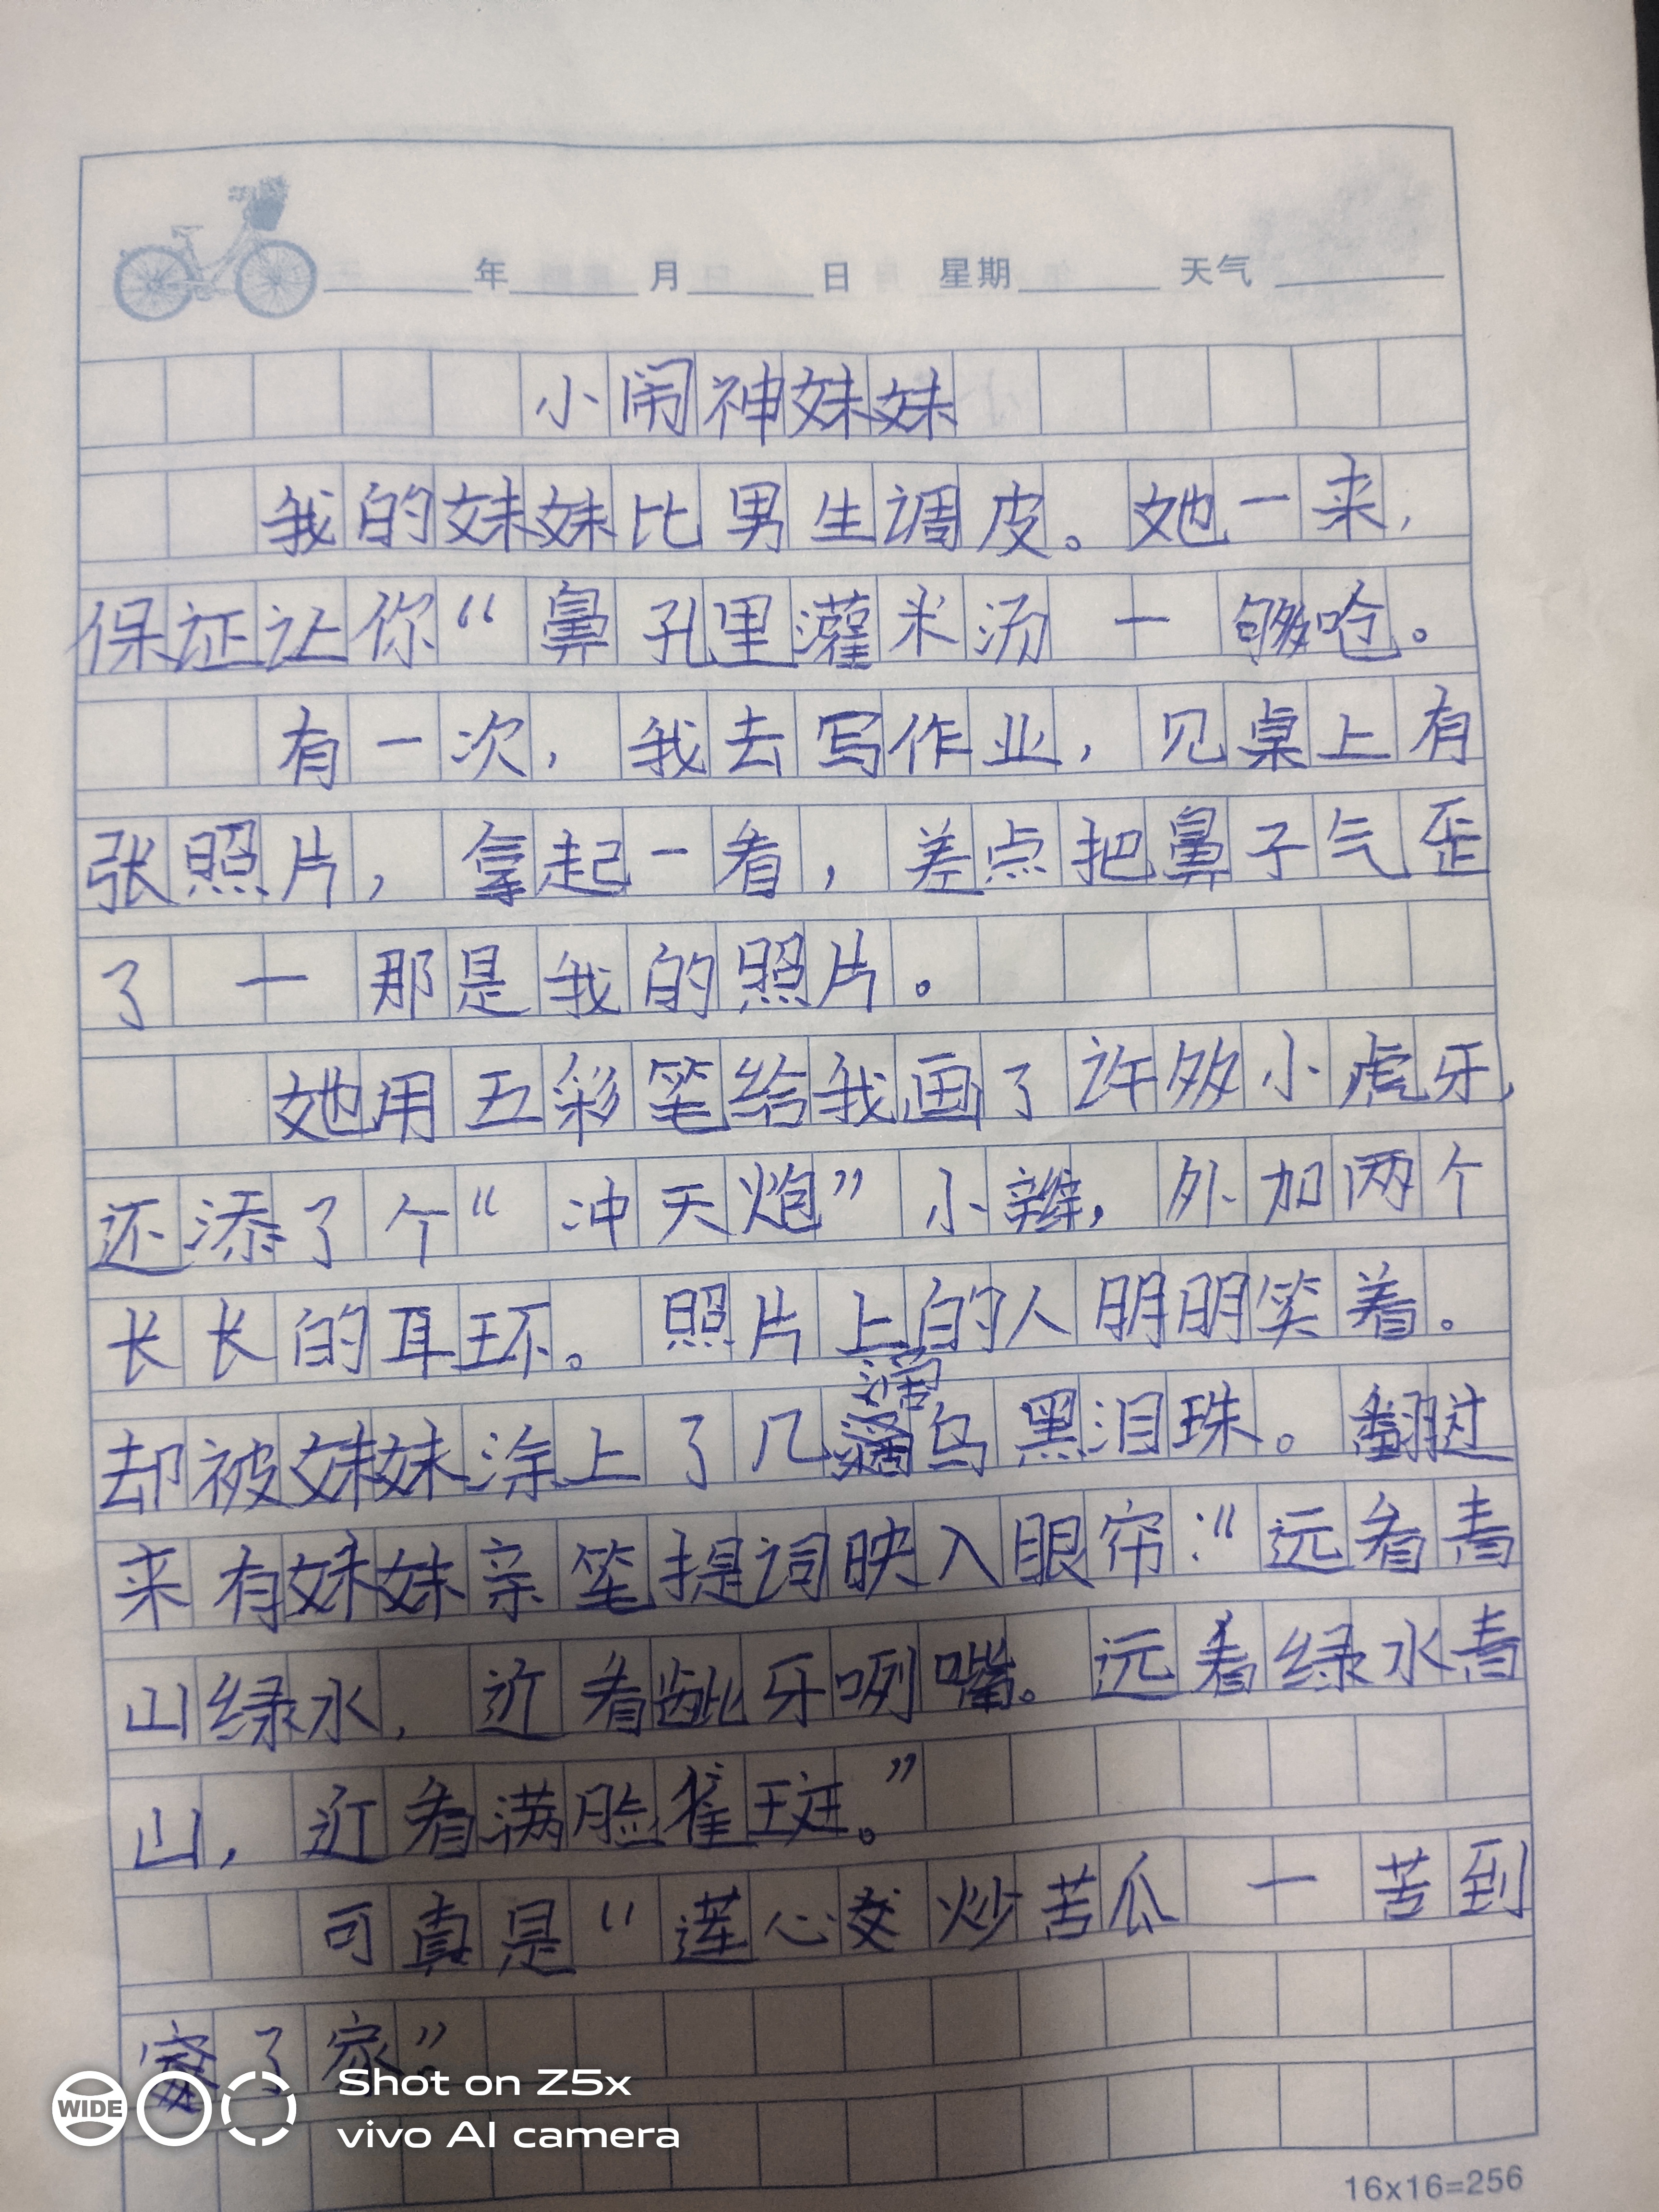 年 月 日 星期 天气
小闹神妹妹
我的妹妹比男生调皮。她一来,
保证让你“鼻孔里灌米汤 一 够呛。
有一次,我去写作业,见桌上有
张照片,拿起一看,差点把鼻子气歪
了 一 那是我的照片。
她用五彩笔给我画了许多小虎牙,
还添了个“冲天炮”小辫,外加两个
长长的耳环。照片上的人明明笑着。
却被妹妹涂上了几滴乌黑泪珠。翻过
来有妹妹亲笔提词映入眼帘:“远看青
山绿水,近看龇牙咧嘴。远看绿水青
山,近看满脸雀斑。”
可真是“莲心炒苦瓜 一 苦到
了家”。
WIDE
Shot on Z5x
vivo AI camera
16x16=256